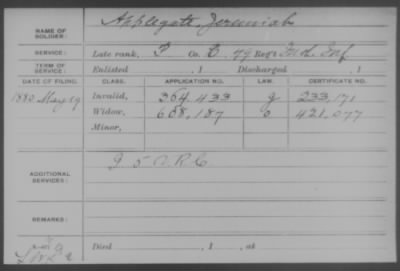 NAME OF SOLDIER: Applegate, Jeremiah
SERVICE: Late rank, P Co. C, 79 Reg't Ind. Inf
TERM OF SERVICE: Enlisted , 1 Discharged , 1
DATE OF FILING. CLASS. APPLICATION NO. LAW. CERTIFICATE NO.
1880 May 19 Invalid, 364,433 g 233,171
Widow, 668,187 421,077
Minor,
ADDITIONAL SERVICES: G 5 V. R. C
REMARKS:
Died , 1 , at